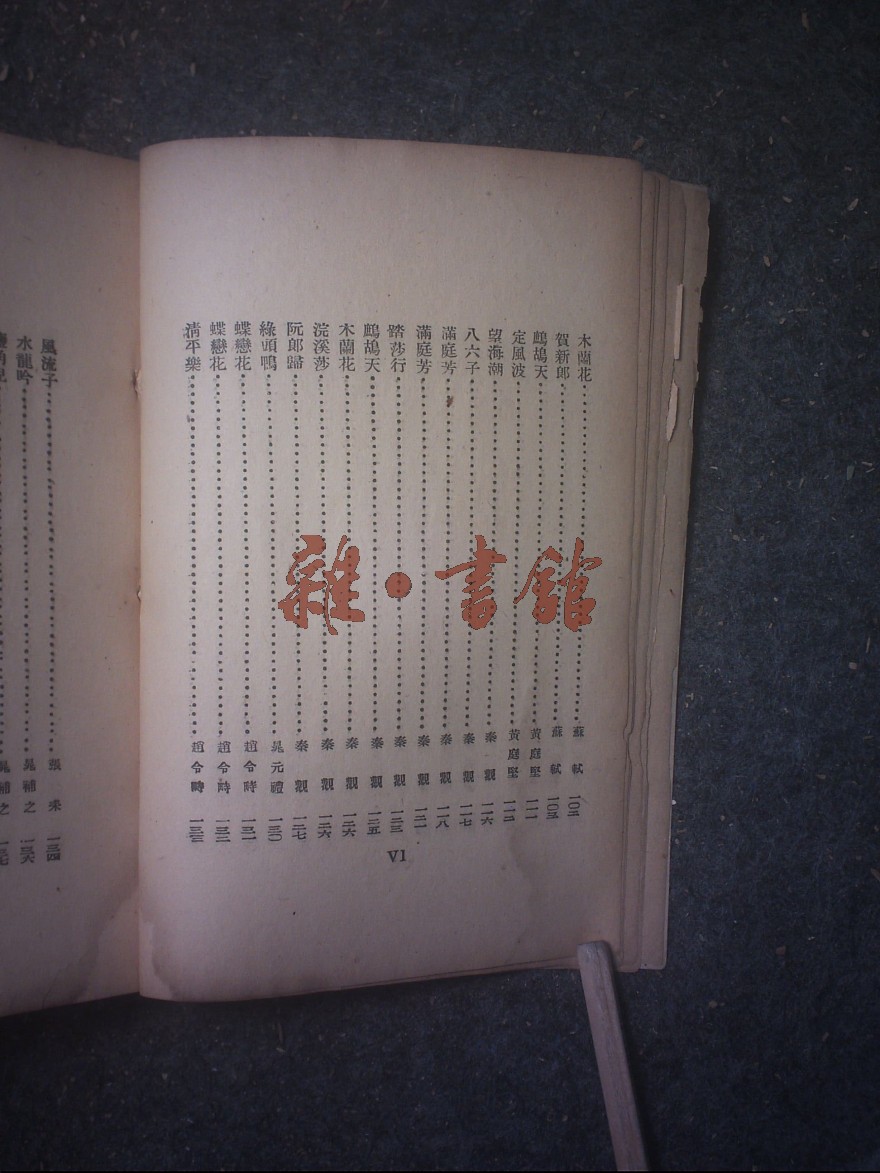 木蘭花……蘇軾 一〇二
賀新郎……蘇軾 一〇三
鷓鴣天……黃庭堅 一一一
定風波……黃庭堅 一一二
望海潮……秦觀 一一六
八六子……秦觀 一一七
滿庭芳……秦觀 一一八
滿庭芳……秦觀 一二一
踏莎行……秦觀 一二三
鷓鴣天……秦觀 一二五
木蘭花……秦觀 一二六
浣溪莎……秦觀 一二六
阮郎歸……秦觀 一二七
綠頭鴨……晁元禮 一三〇
蝶戀花……趙令畤 一三一
蝶戀花……趙令畤 一三二
清平樂……趙令畤 一三三
VI
風流子……張耒 一三四
水龍吟……晁補之 一三六
晁補之 一三七
雜·書館